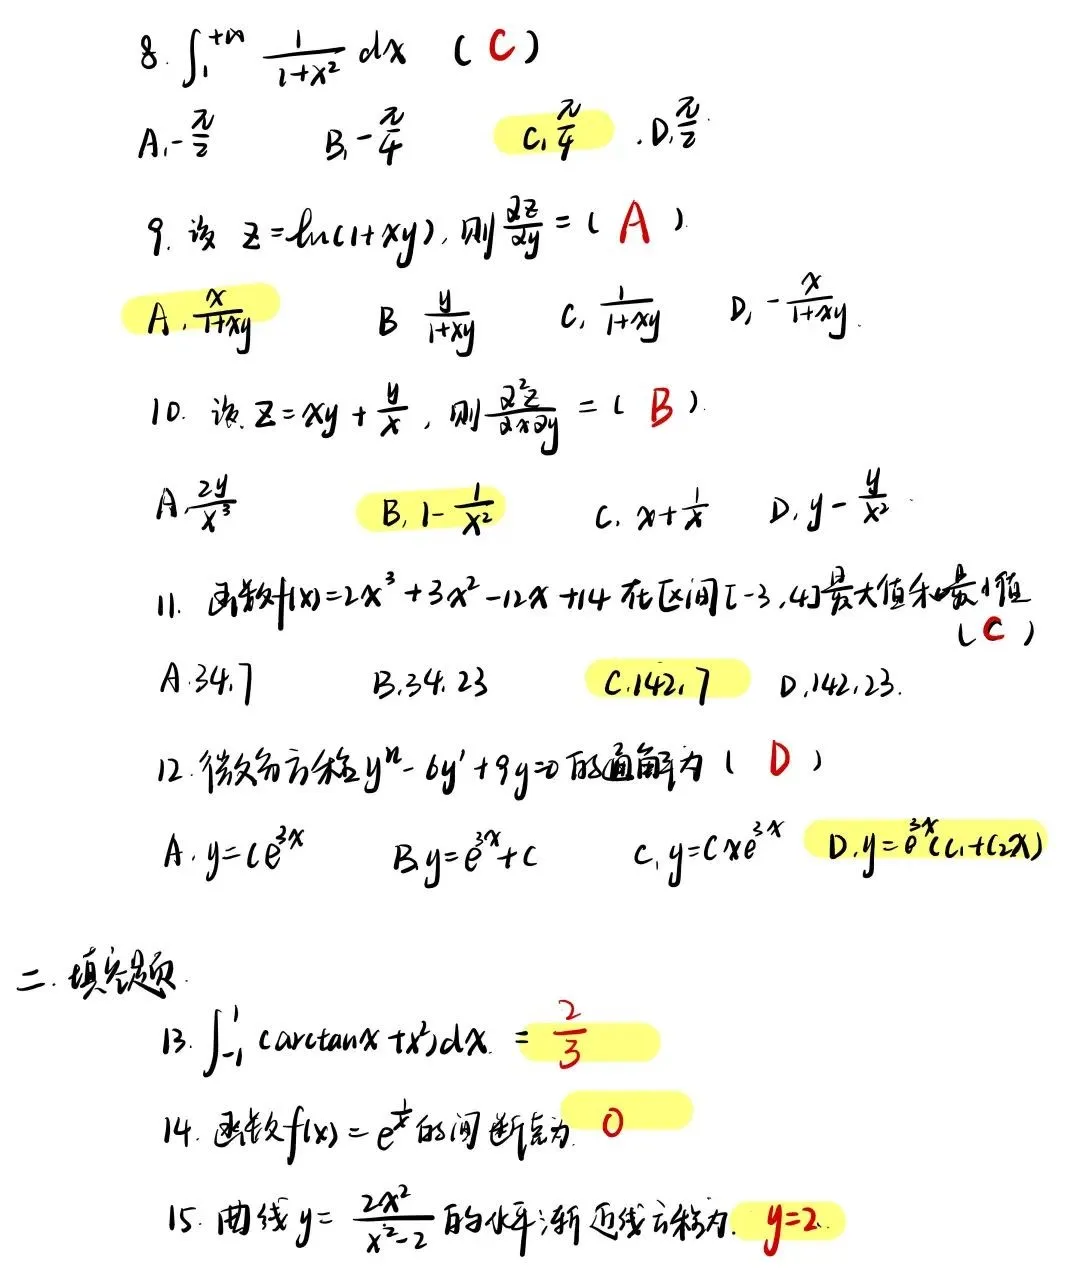 8. ∫₁^{+∞} 1/(1+x²) dx ( C )
A. -π/2 B. -π/4 C. π/4 . D. π/2
9. 设 z=ln(1+xy), 则 ∂z/∂y = ( A ).
A. x/(1+xy) B y/(1+xy) C. 1/(1+xy) D. -x/(1+xy).
10. 设 z=xy+y/x, 则 ∂²z/∂x∂y = ( B ).
A. 2y/x³ B. 1-1/x² C. x+1/x D. y-y/x².
11. 函数f(x)=2x³+3x²-12x+14在区间[-3,4]最大值和最小值
( C )
A.34.7 B.34.23 C.142.7 D.142.23.
12. 微分方程y″-6y′+9y=0的通解为 ( D )
A. y=Ce^{3x} B. y=e^{3x}+C C. y=Cxe^{3x} D. y=e^{3x}(C₁+C₂x)
二. 填空题.
13. ∫₋₁¹ (arctanx+x²)dx. = 2/3
14. 函数f(x)=e^{1/x}的间断点为. 0
15. 曲线y= 2x²/(x²-2) 的水平渐近线方程为. y=2.